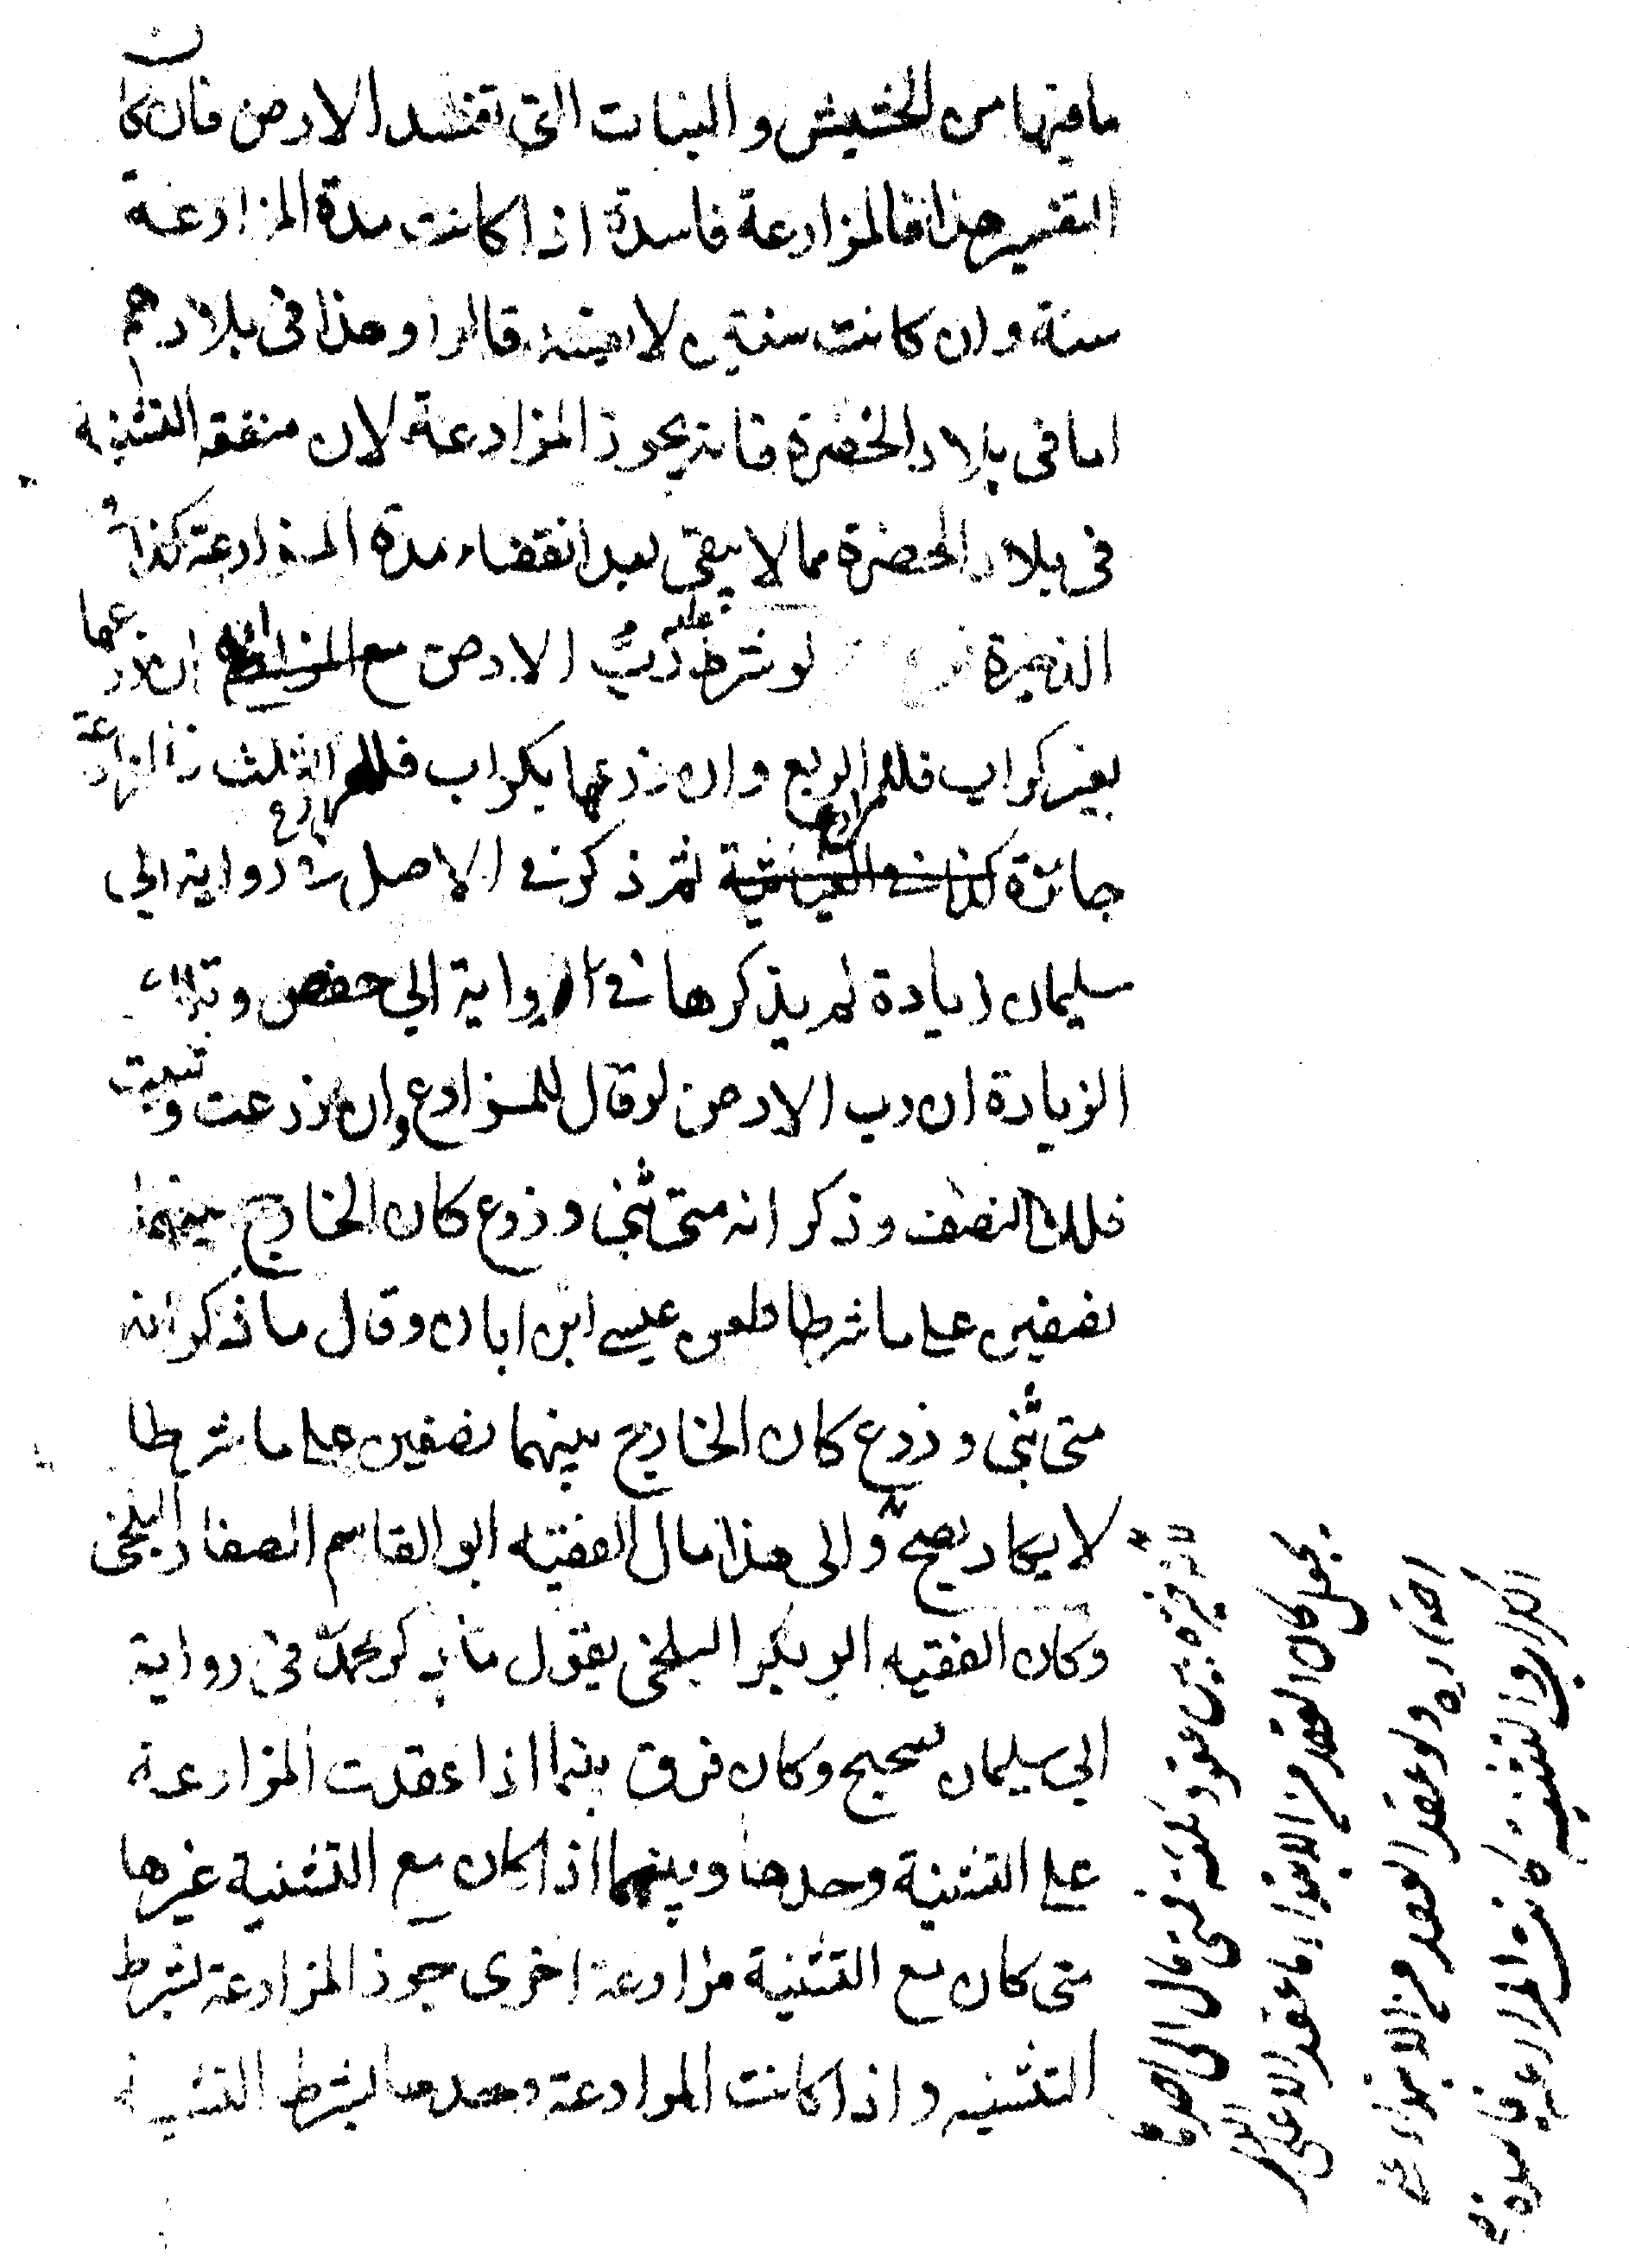 ما فيها من الحشيش والنبات التى تفسد الارض فان كان
التفسير هذا فالمزارعة فاسدة اذا كانت مدة المزارعة
سنة وان كانت سنتين لا يفسد قالوا وهذا فى بلادهم
اما فى بلاد الخضرة فانه يجوز المزارعة لان منفعة التثنية
فى بلاد الخضرة مما لا يبقى بعد انقضاء مدة المزارعة كذا فى
الذخيرة لو شرط عليه رب الارض مع المزارع ان زرعها
بغير كراب فللمزارع الربع وان زرعها بكراب فللمزارع الثلث فالمزارعة
جائزة كذا فى الغياثية ثم ذكر فى الاصل فى رواية ابي
سليمان زيادة لم يذكرها فى الرواية ابي حفص وتلك
الزيادة ان رب الارض لو قال للمزارع وان زرعت وثنيت
فلك النصف وذكر انه متى ثنى وزرع كان الخارج بينهما
نصفين على ما شرطا طعن عيسى ابن ابان وقال ما ذكر انه
متى ثنى وزرع كان الخارج بينهما نصفين على ما شرطا
لا يكاد يصح والى هذا مال الفقيه ابو القاسم الصفار البلخى
وكان الفقيه ابو بكر البلخى يقول ما ذكر محمد فى رواية
ابى سليمان صحيح وكان فرق بينما اذا عقدت المزارعة
على التثنية وحدها وبينهما اذا كان مع التثنية غيرها
متى كان مع التثنية مزارعة اخرى جوز المزارعة بشرط
التثنيه واذا كانت المزارعة وحدها بشرط التثنية
يجعل كان العقد من الابتداء ما عقد الا على
اختاره ولو عقد العقد من الابتداء على
الكراب والتثنية كانت المزارعة فاسدة